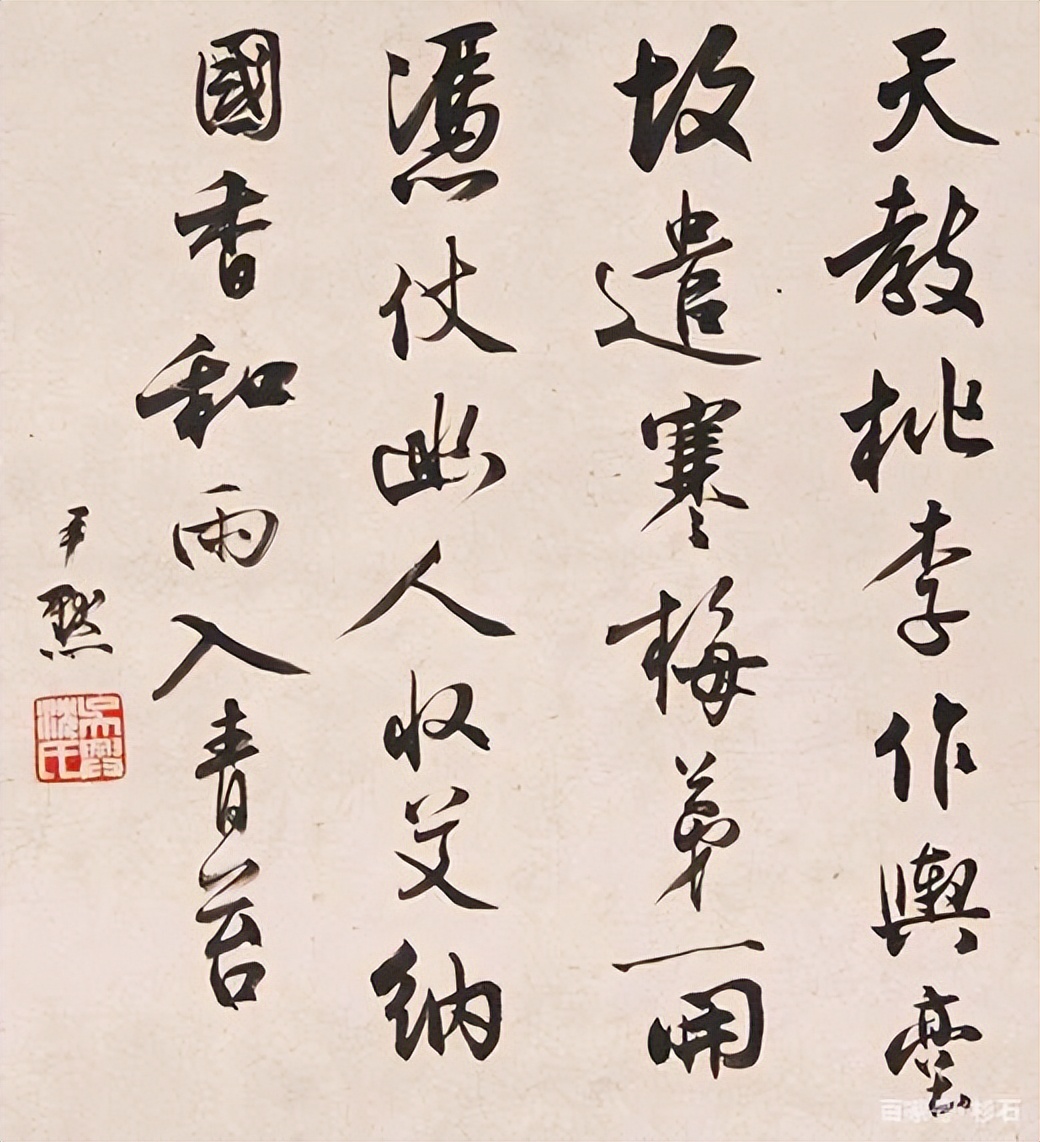 天教桃李作輿臺
故遣寒梅第一開
憑仗幽人收艾納
國香和雨入青苔
尹默
吳興沈氏
杉石